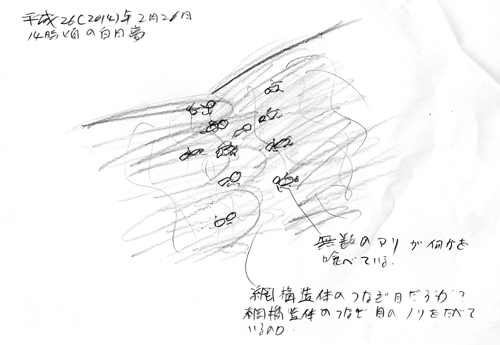 平成26(2014)年2月26日
14時頃の白日夢
無数のアリが何かを
喰べている.
網構造体のつなぎ目だろうか?
網構造体のつなぎ目のノリをたべて
いるのか.